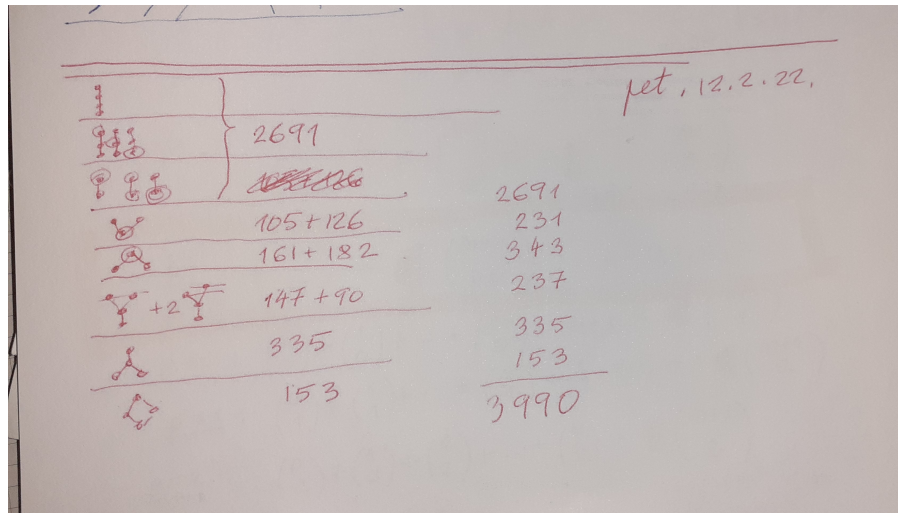 pet, 12.2.22.
2691
105+126
161+182
+2 147+90
335
153
2691
231
343
237
335
153
3990